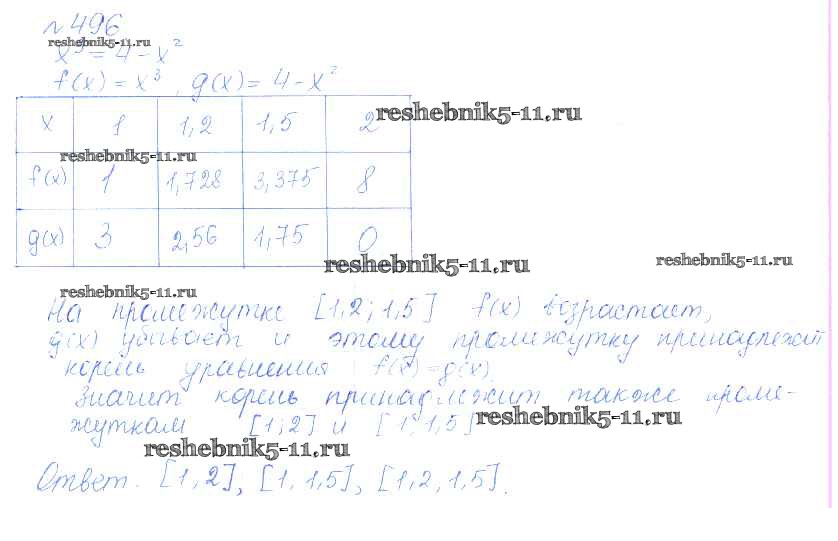 №496
reshebnik5-11.ru
x³ = 4 - x²
f(x) = x³, g(x) = 4 - x²
reshebnik5-11.ru
x 1 1,2 1,5 2
reshebnik5-11.ru
f(x) 1 1,728 3,375 8
g(x) 3 2,56 1,75 0
reshebnik5-11.ru
reshebnik5-11.ru
reshebnik5-11.ru
На промежутке [1,2; 1,5] f(x) возрастает,
g(x) убывает и этому промижутку принадлежит
корень уравнения f(x) = g(x).
Значит корень принадлежит также проме-
жуткам [1; 2] и [1; 1,5]
reshebnik5-11.ru
reshebnik5-11.ru
Ответ. [1, 2], [1, 1,5], [1,2, 1,5].